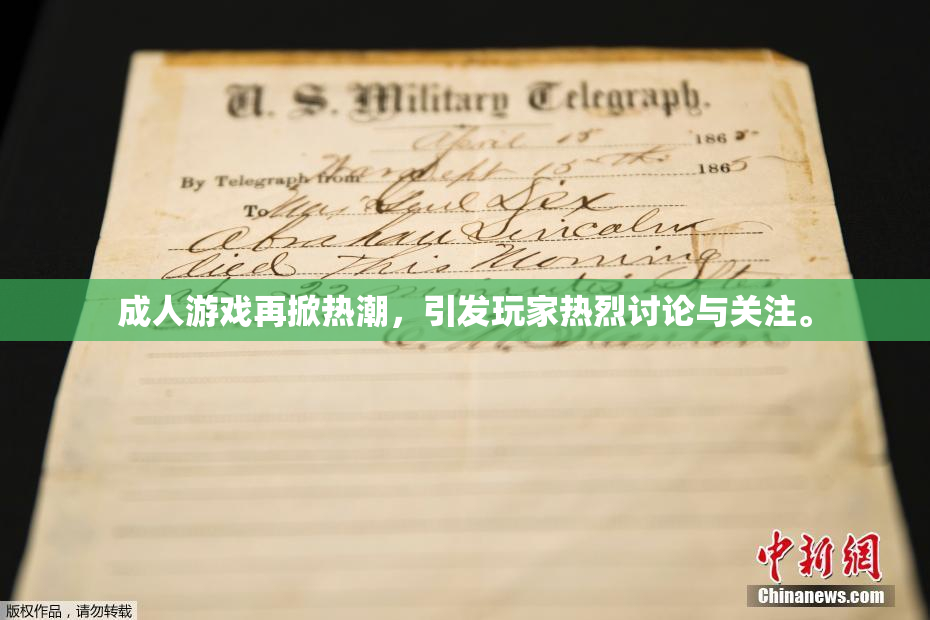 U. S. Military Telegraph.
April 15 1865
By Telegraph from War Dept 15th 1865
To Maj Genl Dix
Abraham Lincoln
died This Morning
at 22 minutes after
成人游戏再掀热潮，引发玩家热烈讨论与关注。
E. M. Stanton
中新网
Chinanews.com
版权作品，请勿转载